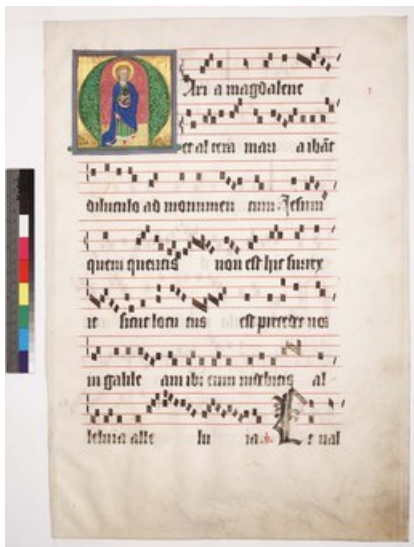 Aria magdalene
et altera maria ibāt
diluculo ad monumentum. Jesum
quem queritis non est hic surrex
it sicut locutus est precedet vos
in galileam ibi eum videbitis al
leluia alleluia. E ual